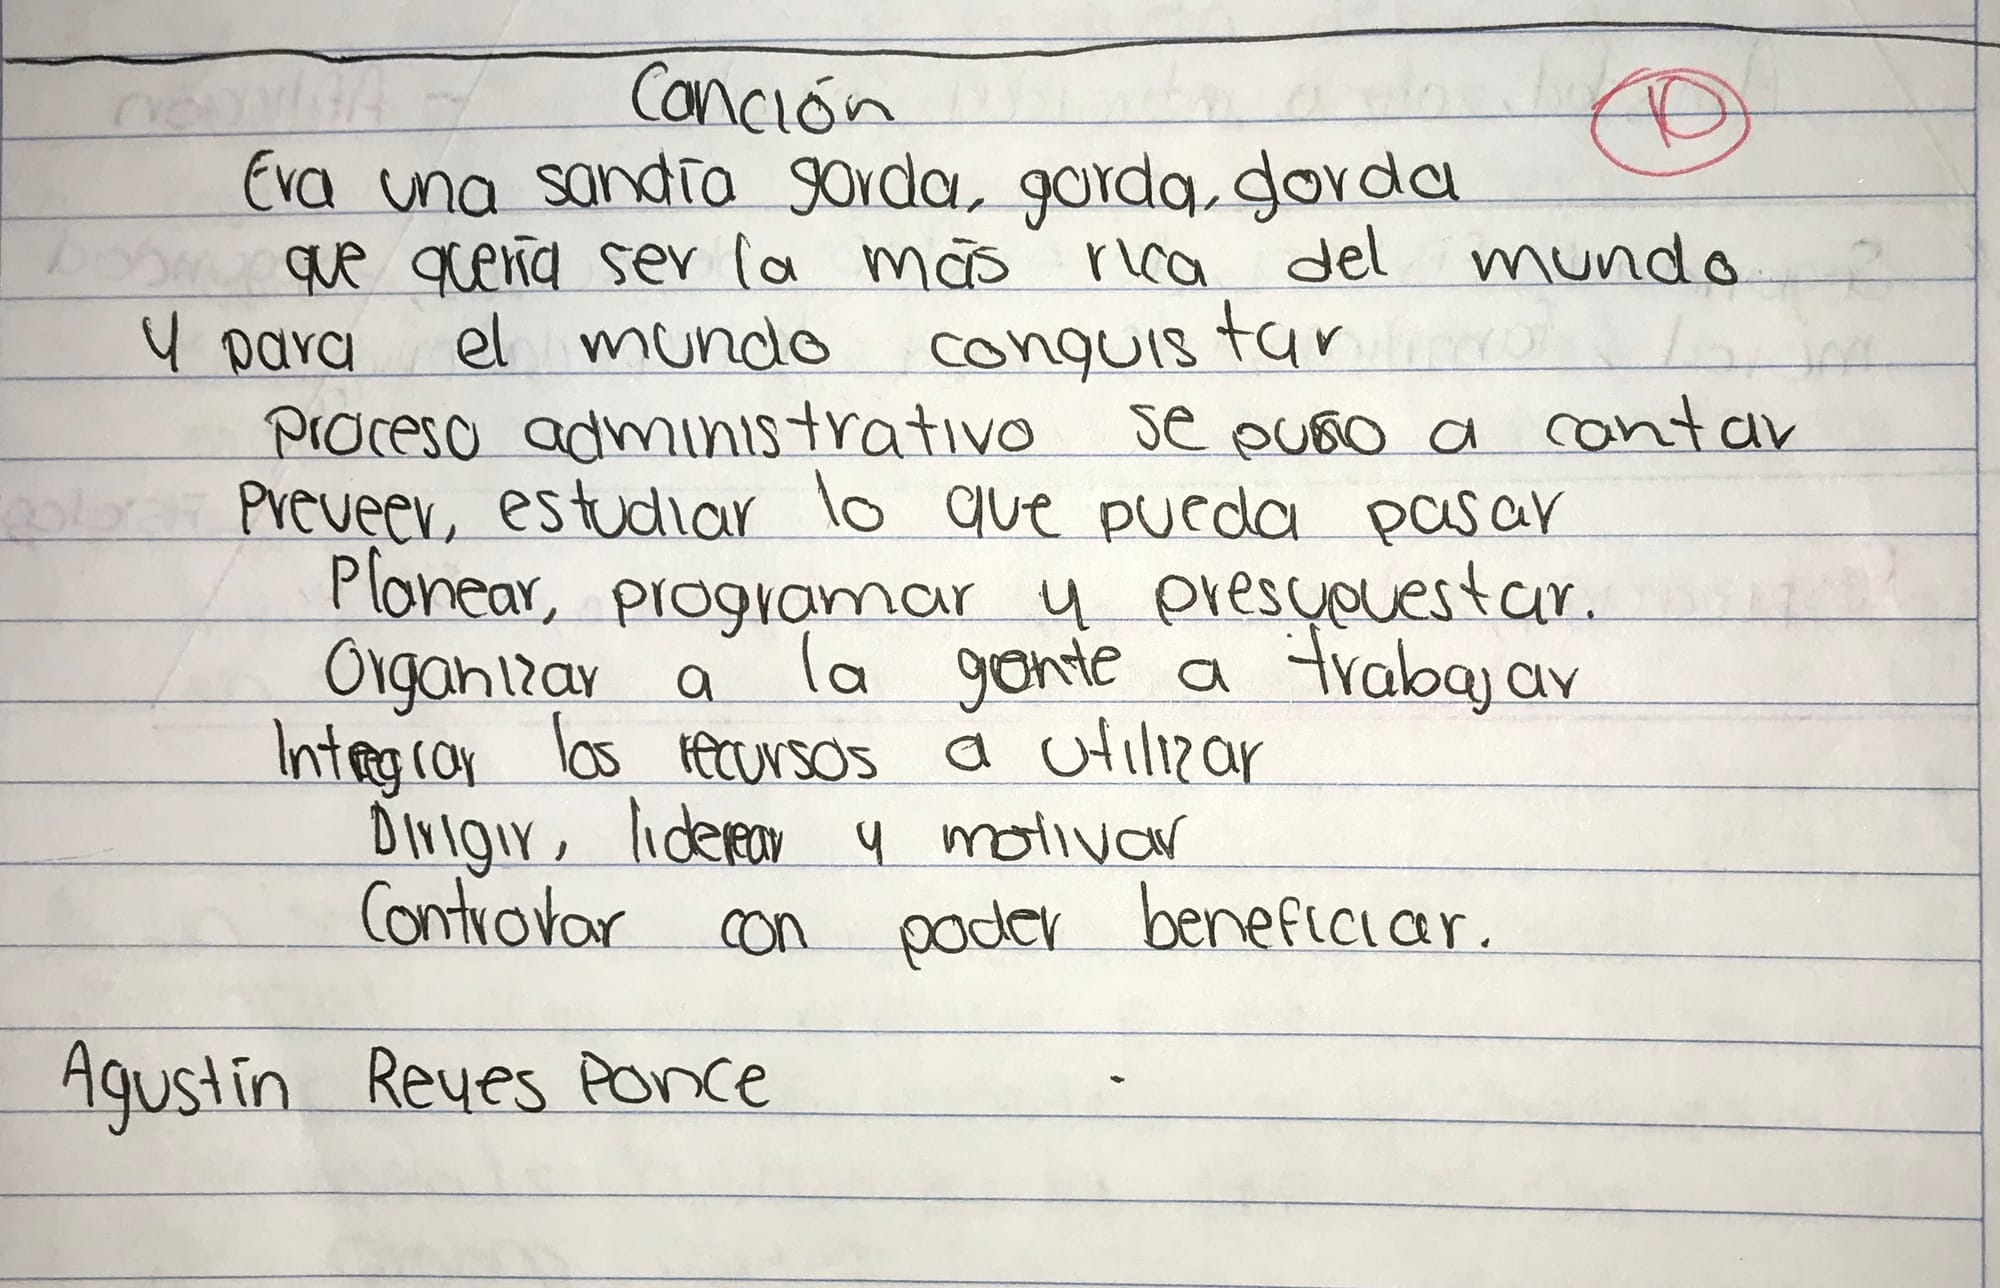 Canción
10
Era una sandía gorda, gorda, gorda
que quería ser la más rica del mundo
y para el mundo conquistar
proceso administrativo se puso a cantar
Preveer, estudiar lo que pueda pasar
Planear, programar y presupuestar.
Organizar a la gente a trabajar
Integrar los recursos a utilizar
Dirigir, liderear y motivar
Controlar con poder beneficiar.
Agustín Reyes Ponce